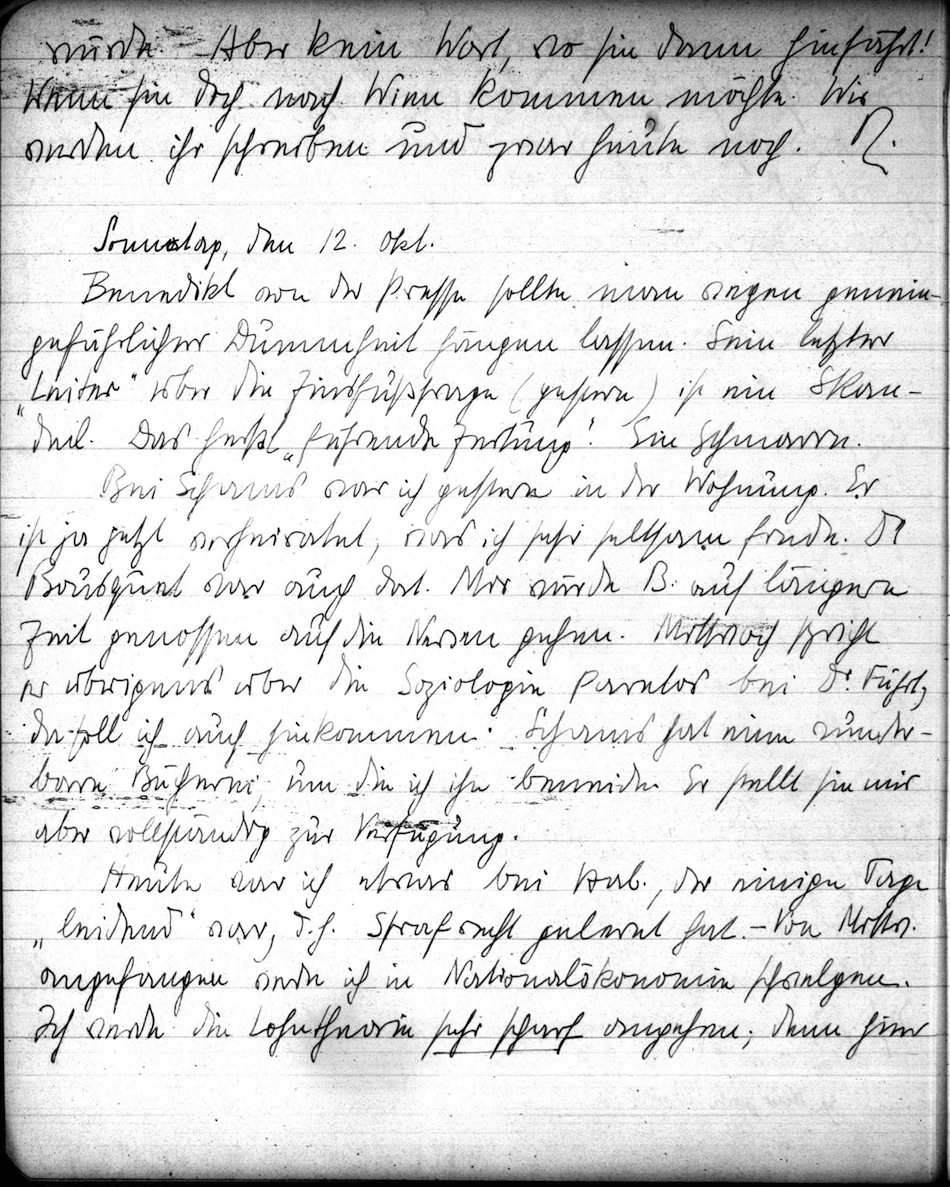 würde. Aber kein Wort, wo sie dann hinfährt!
Wenn sie doch nach Wien kommen möchte. Wir
werden ihr schreiben und zwar heute noch.
Sonntag, den 12. Okt.
Benedikt von der Presse sollte man wegen gemein-
gefährlicher Dummheit hängen lassen. Sein letzter
„Leiter“ über die Zinsfußfrage (gestern) ist ein Skan-
dal. Das heißt „führende Zeitung“. Ein Schmarrn.
Bei Schams war ich gestern in der Wohnung. Er
ist ja jetzt verheiratet, was ich sehr seltsam finde. Dr
Bousquet war auch dort. Mir würde B. auf längere
Zeit genossen auf die Nerven gehen. Mittwoch spricht
er übrigens über die Soziologie Paretos bei Dr. Fürth,
da soll ich auch hinkommen. Schams hat eine wunder-
bare Bücherei, um die ich ihn beneide. Er stellt sie mir
aber vollständig zur Verfügung.
Heute war ich etwas bei Hab., der einige Tage
„leidend“ war, d.h. Strafrecht gelernt hat. – Von Mittw.
angefangen werde ich in Nationalökonomie schwelgen.
Ich werde die Lohntheorie sehr scharf angehen; denn hier